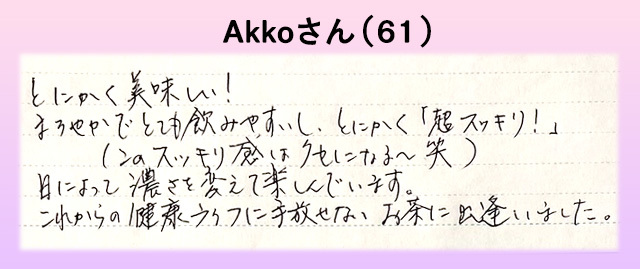 Akkoさん(61)
とにかく美味しい!
まろやかでとても飲みやすいし、とにかく「超スッキリ!」
(このスッキリ感はクセになる〜笑)
日によって濃さを変えて楽しんでいます。
これからの健康ライフに手放せないお茶に出逢いました。